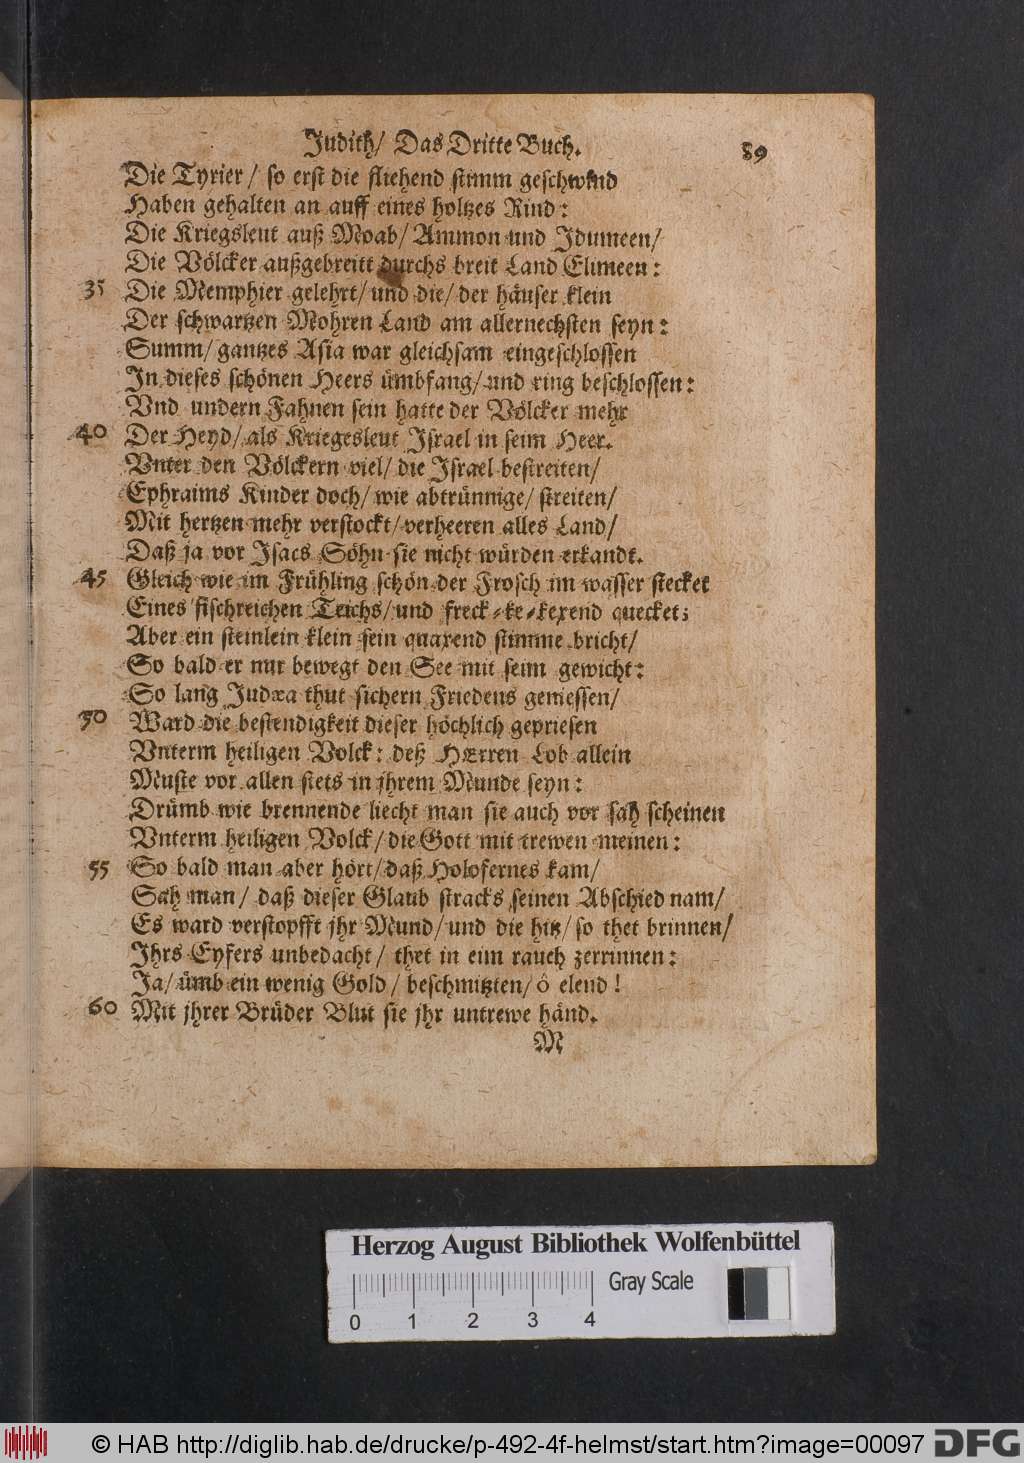 Judith/ Das Dritte Buch. 89
Die Tyrier/ so erst die fliehend stimm geschwind
Haben gehalten an auff eines holtzes Rind:
Die Kriegsleut auß Moab/ Ammon und Idumeen/
Die Völcker außgebreitt durchs breit Land Elimeen:
35 Die Memphier gelehrt/ und die/ der häuser klein
Der schwartzen Mohren Land am allernechsten seyn:
Summ/ gantzes Asia war gleichsam eingeschlossen
In dieses schönen Heers ümbfang/ und ring beschlossen:
Vnd undern Fahnen sein hatte der Völcker mehr
40 Der Heyd/ als Kriegesleut Israel in seim Heer.
Vnter den Völckern viel/ die Israel bestreiten/
Ephraims Kinder doch/ wie abtrünnige/ streiten/
Mit hertzen mehr verstockt/ verheeren alles Land/
Daß ja vor Isacs Söhn sie nicht würden erkandt.
45 Gleich wie im Frühling schön der Frosch im wasser stecket
Eines fischreichen Teichs/ und freck-ke-kexend quecket;
Aber ein steinlein klein sein quaxend stimme bricht/
So bald er nur bewegt den See mit seim gewicht:
So lang Judæa thut sichern Friedens geniessen/
50 Ward die bestendigkeit dieser höchlich gepriesen
Vnterm heiligen Volck: deß HErren Lob allein
Muste vor allen stets in jhrem Munde seyn:
Drümb wie brennende liecht man sie auch vor sah scheinen
Vnterm heiligen Volck/ die Gott mit trewen meinen:
55 So bald man aber hört/ daß Holofernes kam/
Sah man/ daß dieser Glaub stracks seinen Abschied nam/
Es ward verstopfft jhr Mund/ und die hitz/ so thet brinnen/
Ihrs Eyfers unbedacht/ thet in eim rauch zerrinnen:
Ja/ ümb ein wenig Gold/ beschmitzten/ ô elend!
60 Mit jhrer Brüder Blut sie jhr untrewe händ.
M
Herzog August Bibliothek Wolfenbüttel
Gray Scale
0 1 2 3 4
© HAB http://diglib.hab.de/drucke/p-492-4f-helmst/start.htm?image=00097 DFG